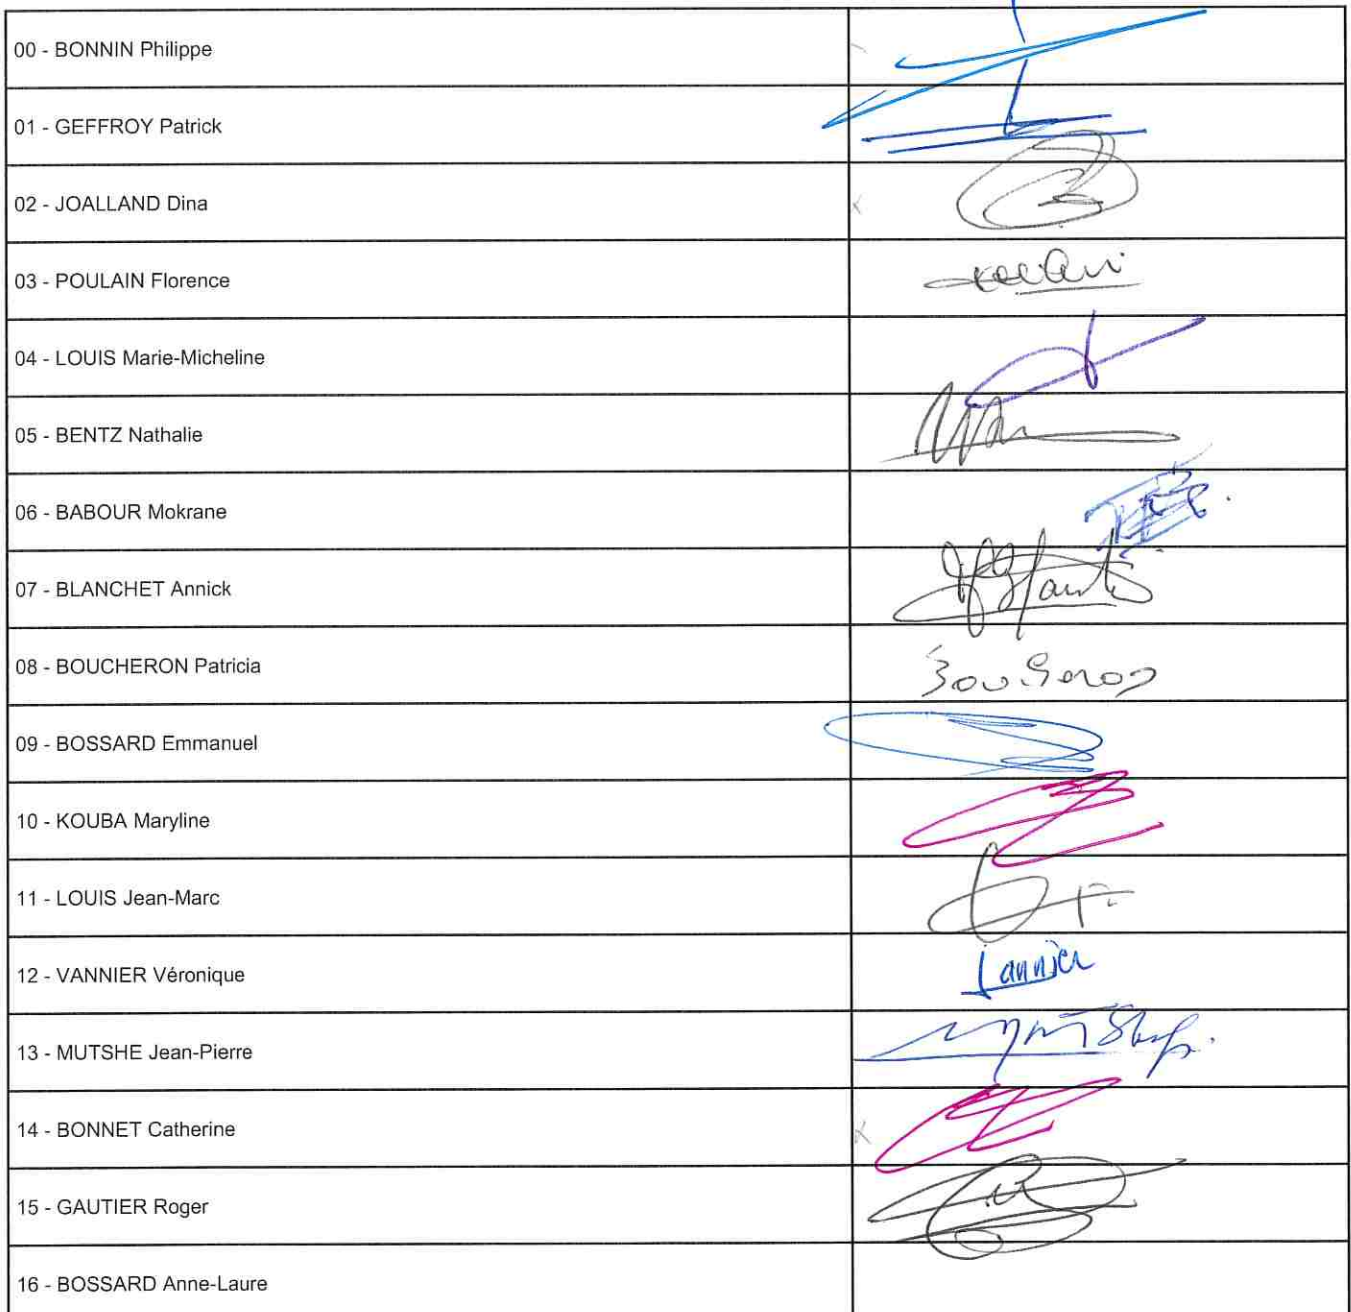 00 - BONNIN Philippe
01 - GEFFROY Patrick
02 - JOALLAND Dina
03 - POULAIN Florence
04 - LOUIS Marie-Micheline
05 - BENTZ Nathalie
06 - BABOUR Mokrane
07 - BLANCHET Annick
08 - BOUCHERON Patricia
09 - BOSSARD Emmanuel
10 - KOUBA Maryline
11 - LOUIS Jean-Marc
12 - VANNIER Véronique
13 - MUTSHE Jean-Pierre
14 - BONNET Catherine
15 - GAUTIER Roger
16 - BOSSARD Anne-Laure